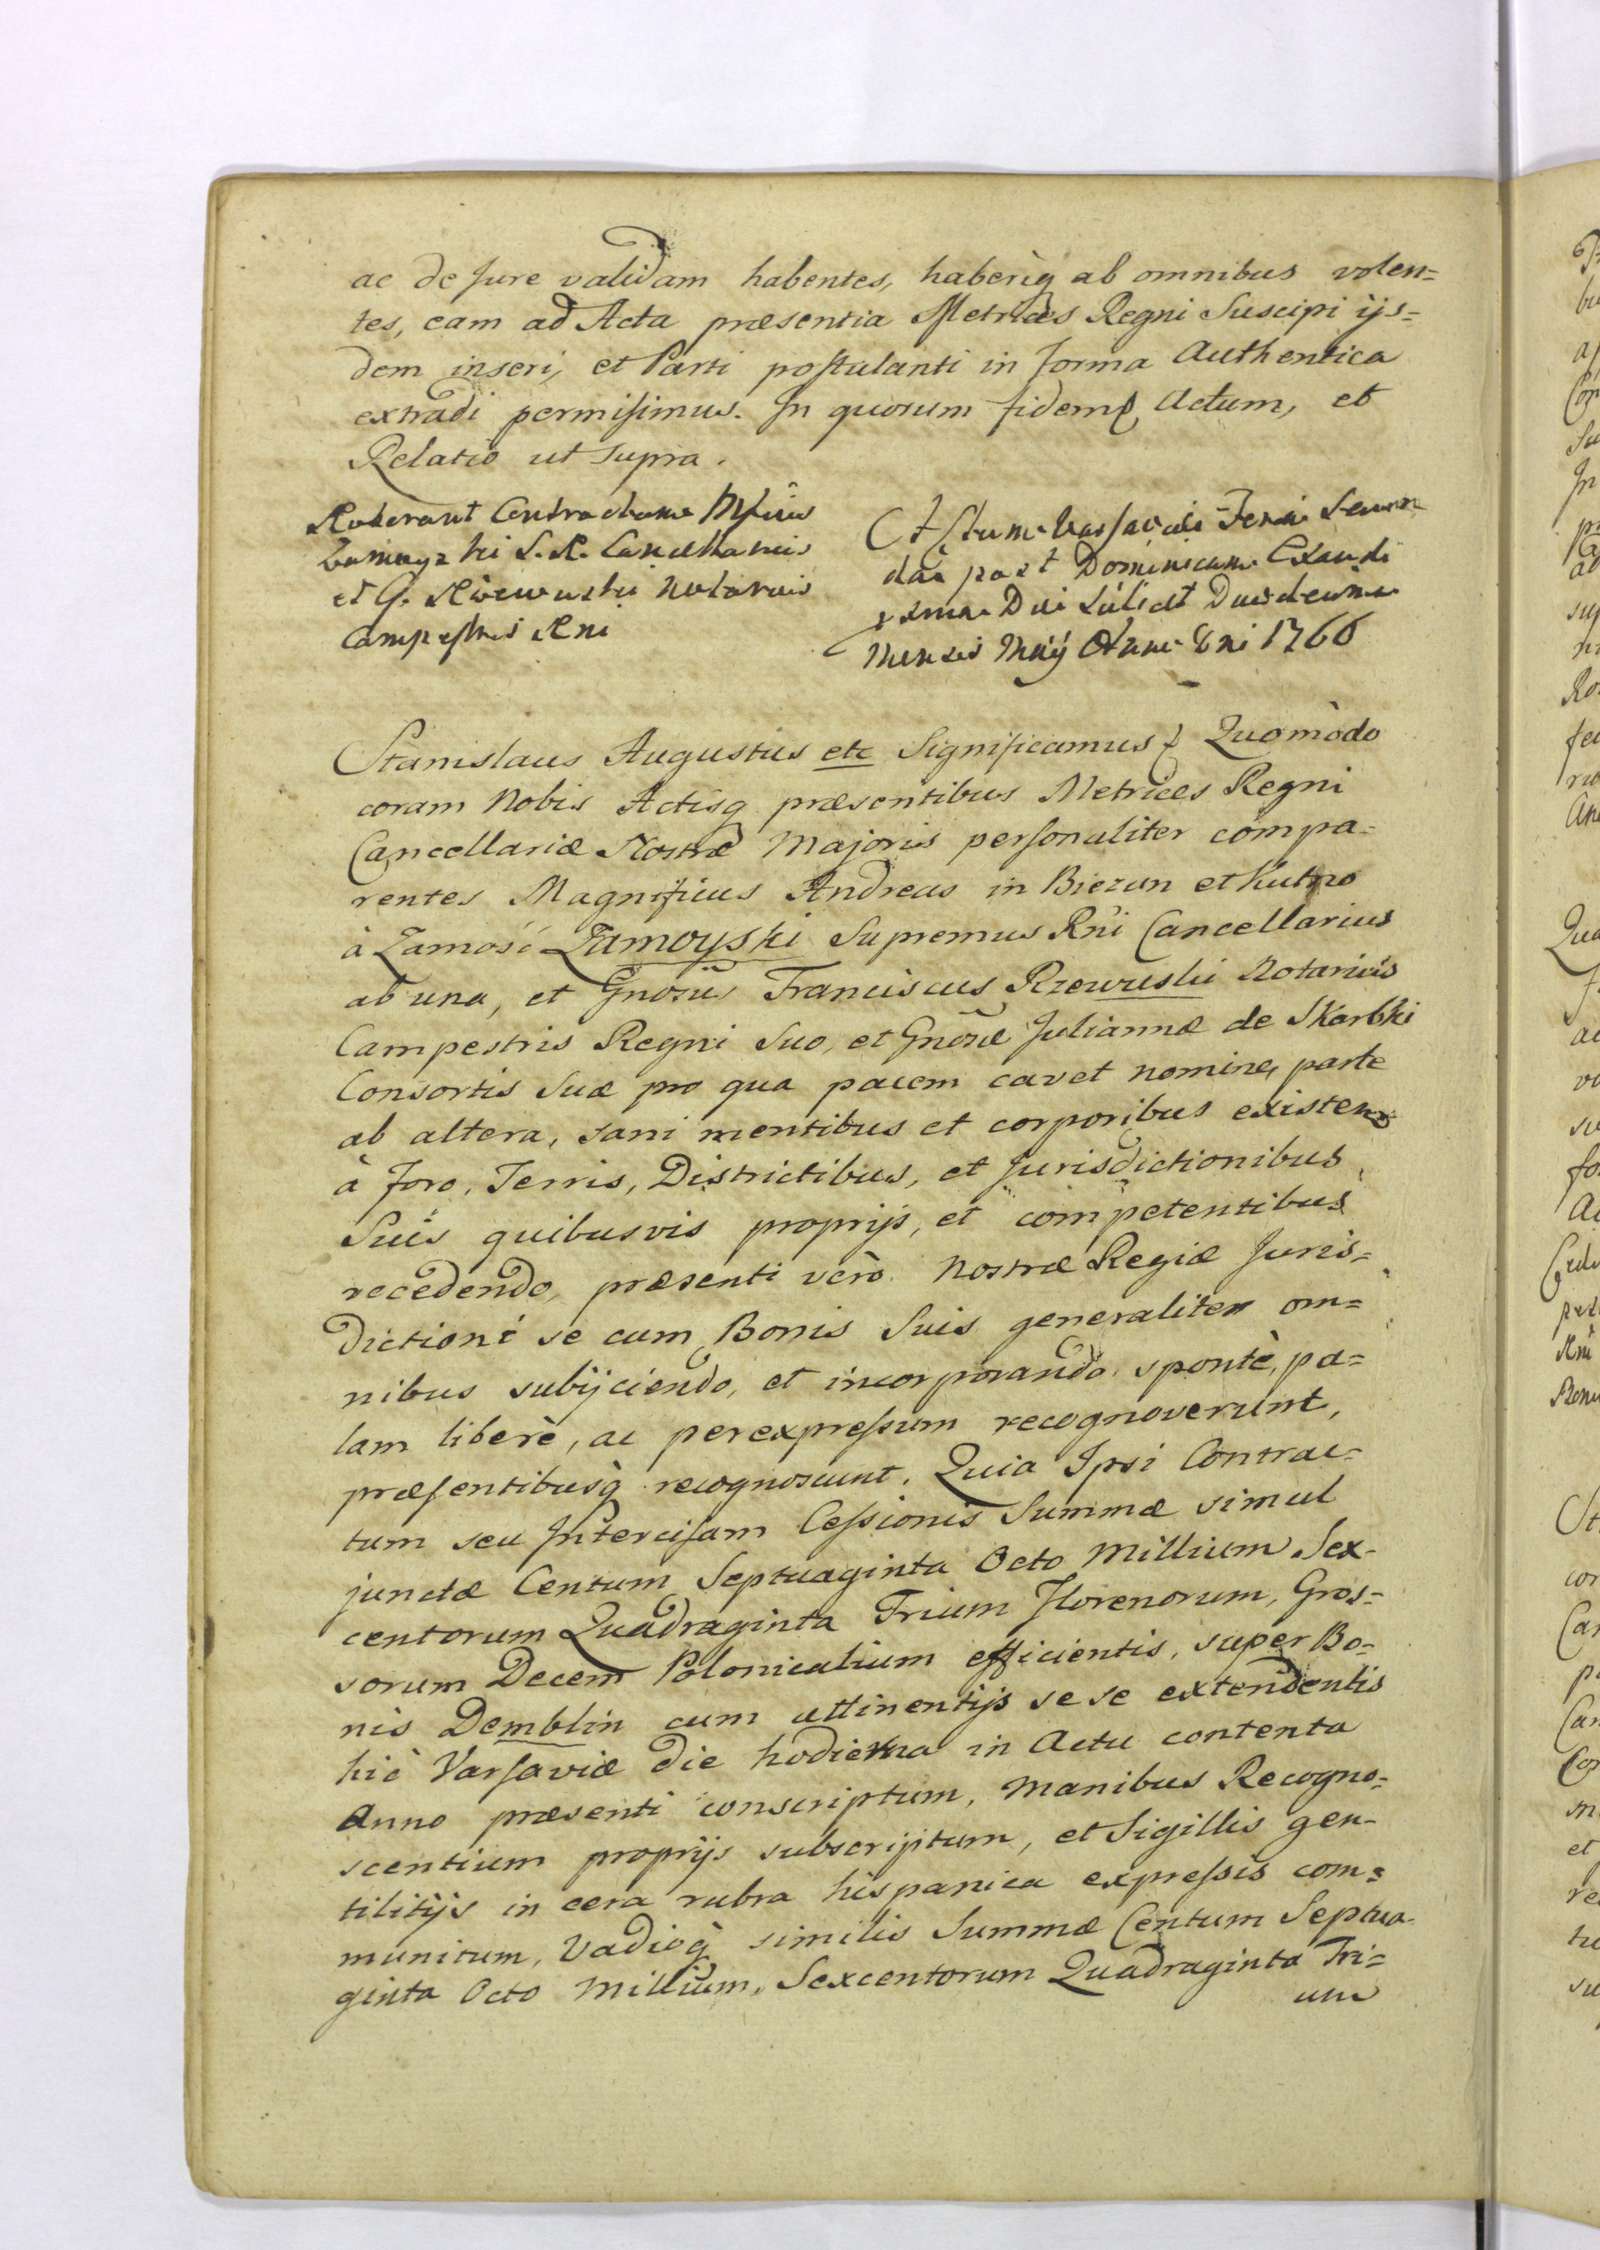 ac de Jure validam habentes, haberiq ab omnibus volen=
tes, eam ad Acta præsentia Metrices Regni Suscipi ijs=
dem inseri, et Parti postulanti in forma Authentica
extradi permisimus. In quorum fidem Actum, et
Relatio ut supra.
Roborant Contractum Mfcus
Zamoyski S. R. Cancellarius
et G. Rzewuski Notarius
Campestris Rni
Actum Varsaviæ Feria Secun
da post Dominicam Exaudi
xima Die scilicet Duodecima
Mensis Maÿ Anno Dni 1766
Stanislaus Augustus etc Significamus Quomòdo
coram Nobis Actisq præsentibus Metrices Regni
Cancellariæ Nostræ Majoris personaliter compa=
rentes Magnificus Andreas in Biezun et Kutno
à Zamość Zamoyski Supremus Rni Cancellarius
ab una, et Gnosus Franciscus Rzewuski Notarius
Campestris Regni Suo, et Gnosæ Juliannæ de Skarbki
Consortis Suæ pro qua pacem cavet nomine, parte
ab altera, sani mentibus et corporibus existen
à foro, Terris, Districtibus, et Jurisdictionibus
Suis quibusvis proprijs, et competentibus
recedendo, præsenti verò Nostræ Regiæ Juris=
dictioni se cum Bonis Suis generaliter om=
nibus subijciendo, et incorporando, spontè, pa=
lam liberè, ac per expressum recognoverunt,
præsentibusq recognoscunt. Quia Ipsi Contrac=
tum seu Intercisam Cessionis Summæ simul
junctæ Centum Septuaginta Octo Millium Sex-
centorum Quadraginta Trium Florenorum, Gros=
sorum Decem Polonicalium efficientis, super Bo=
nis Demblin cum attinentijs se se extendentis
hic Varsaviæ die hodierna in Actu contenta
Anno præsenti conscriptum, Manibus Recogno=
scentium proprijs subscriptum, et Sigillis gen-
tilitijs in cera rubra hispanica expressis com=
munitum, Vadioq similis Summæ Centum Septua-
ginta Octo Millium, Sexcentorum Quadraginta Tri=
um